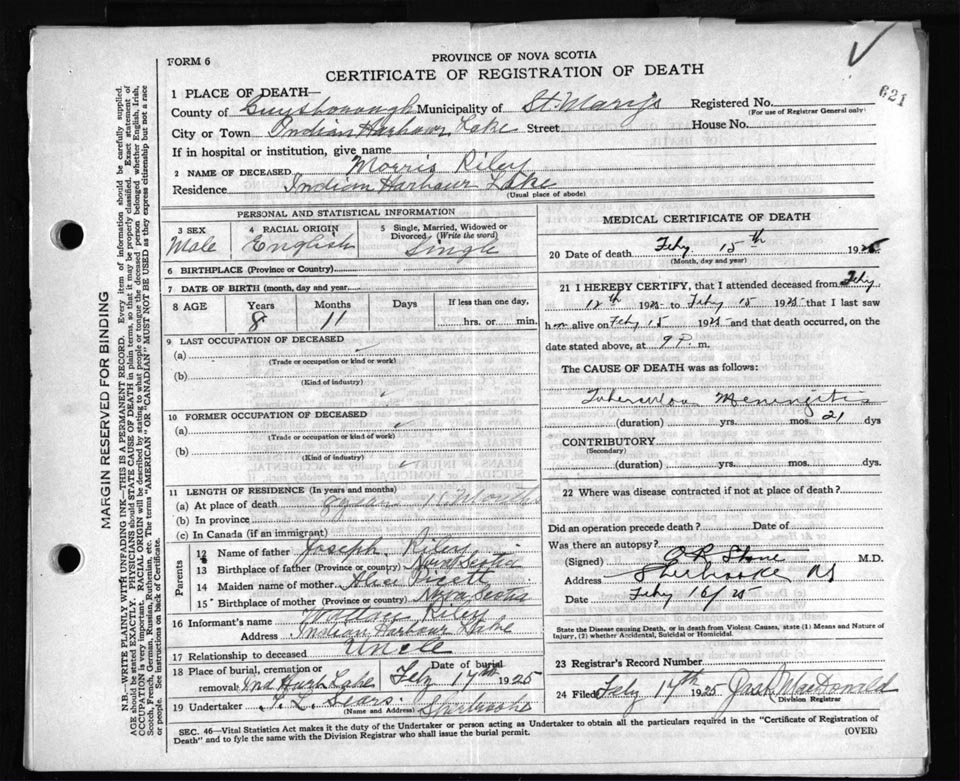 FORM 6
PROVINCE OF NOVA SCOTIA
CERTIFICATE OF REGISTRATION OF DEATH
621
1 PLACE OF DEATH—
County of Guysborough Municipality of St. Mary's Registered No.
(For use of Registrar General only)
City or Town Indian Harbour Lake Street House No.
If in hospital or institution, give name
2 NAME OF DECEASED Morris Riley
Residence Indian Harbour Lake
(Usual place of abode)
PERSONAL AND STATISTICAL INFORMATION
3 SEX 4 RACIAL ORIGIN 5 Single, Married, Widowed or Divorced (Write the word)
Male English Single
6 BIRTHPLACE (Province or Country)
7 DATE OF BIRTH (month, day and year)
8 AGE Years Months Days If less than one day,
8 11 hrs. or min.
9 LAST OCCUPATION OF DECEASED
(a)
(Trade or occupation or kind or work)
(b)
(Kind of industry)
10 FORMER OCCUPATION OF DECEASED
(a)
(Trade or occupation or kind of work)
(b)
(Kind of industry)
11 LENGTH OF RESIDENCE (In years and months)
(a) At place of death Months
(b) In province
(c) In Canada (if an immigrant)
Parents
12 Name of father Joseph Riley
13 Birthplace of father (Province or country) Nova Scotia
14 Maiden name of mother Alice
15 Birthplace of mother (Province or country) Nova Scotia
16 Informant's name Riley
Address Indian Harbour Lake
17 Relationship to deceased Uncle
18 Place of burial, cremation or removal Ind Harb Lake Date of burial Feby 17th 1925
19 Undertaker Sherbrooke
(Name and Address)
MEDICAL CERTIFICATE OF DEATH
20 Date of death Feby 15th 1925
(Month, day and year)
21 I HEREBY CERTIFY, that I attended deceased from Feby
12th 1925 to Feby 15 1925 that I last saw
him alive on Feby 15 1925 and that death occurred, on the
date stated above, at 9 P. m.
The CAUSE OF DEATH was as follows:
Tubercular Meningitis
(duration) yrs. mos. 21 dys
CONTRIBUTORY
(Secondary)
(duration) yrs. mos. dys.
22 Where was disease contracted if not at place of death?
Did an operation precede death? Date of
Was there an autopsy?
(Signed) M.D.
Address Sherbrooke NS
Date Feby 16/25
State the Disease causing Death, or in death from Violent Causes, state (1) Means and Nature of Injury, (2) whether Accidental, Suicidal or Homicidal.
23 Registrar's Record Number
24 Filed Feby 17th 1925 Jas A MacDonald
Division Registrar
SEC. 46—Vital Statistics Act makes it the duty of the Undertaker or person acting as Undertaker to obtain all the particulars required in the "Certificate of Registration of
Death" and to fyle the same with the Division Registrar who shall issue the burial permit.
(OVER)
MARGIN RESERVED FOR BINDING
N.B.—WRITE PLAINLY WITH UNFADING INK—THIS IS A PERMANENT RECORD. Every item of information should be carefully supplied.
AGE should be stated EXACTLY. PHYSICIANS should STATE CAUSE OF DEATH in plain terms, so that it may be properly classified. Exact statement of
OCCUPATION is very important. RACIAL ORIGIN will be described by stating to what people or tongue the deceased person belonged whether English, Irish,
Scotch, French, German, Russian, Ruthenian, etc. The terms "AMERICAN" OR "CANADIAN" MUST NOT BE USED as they express citizenship but not a race
or people. See instructions on back of Certificate.